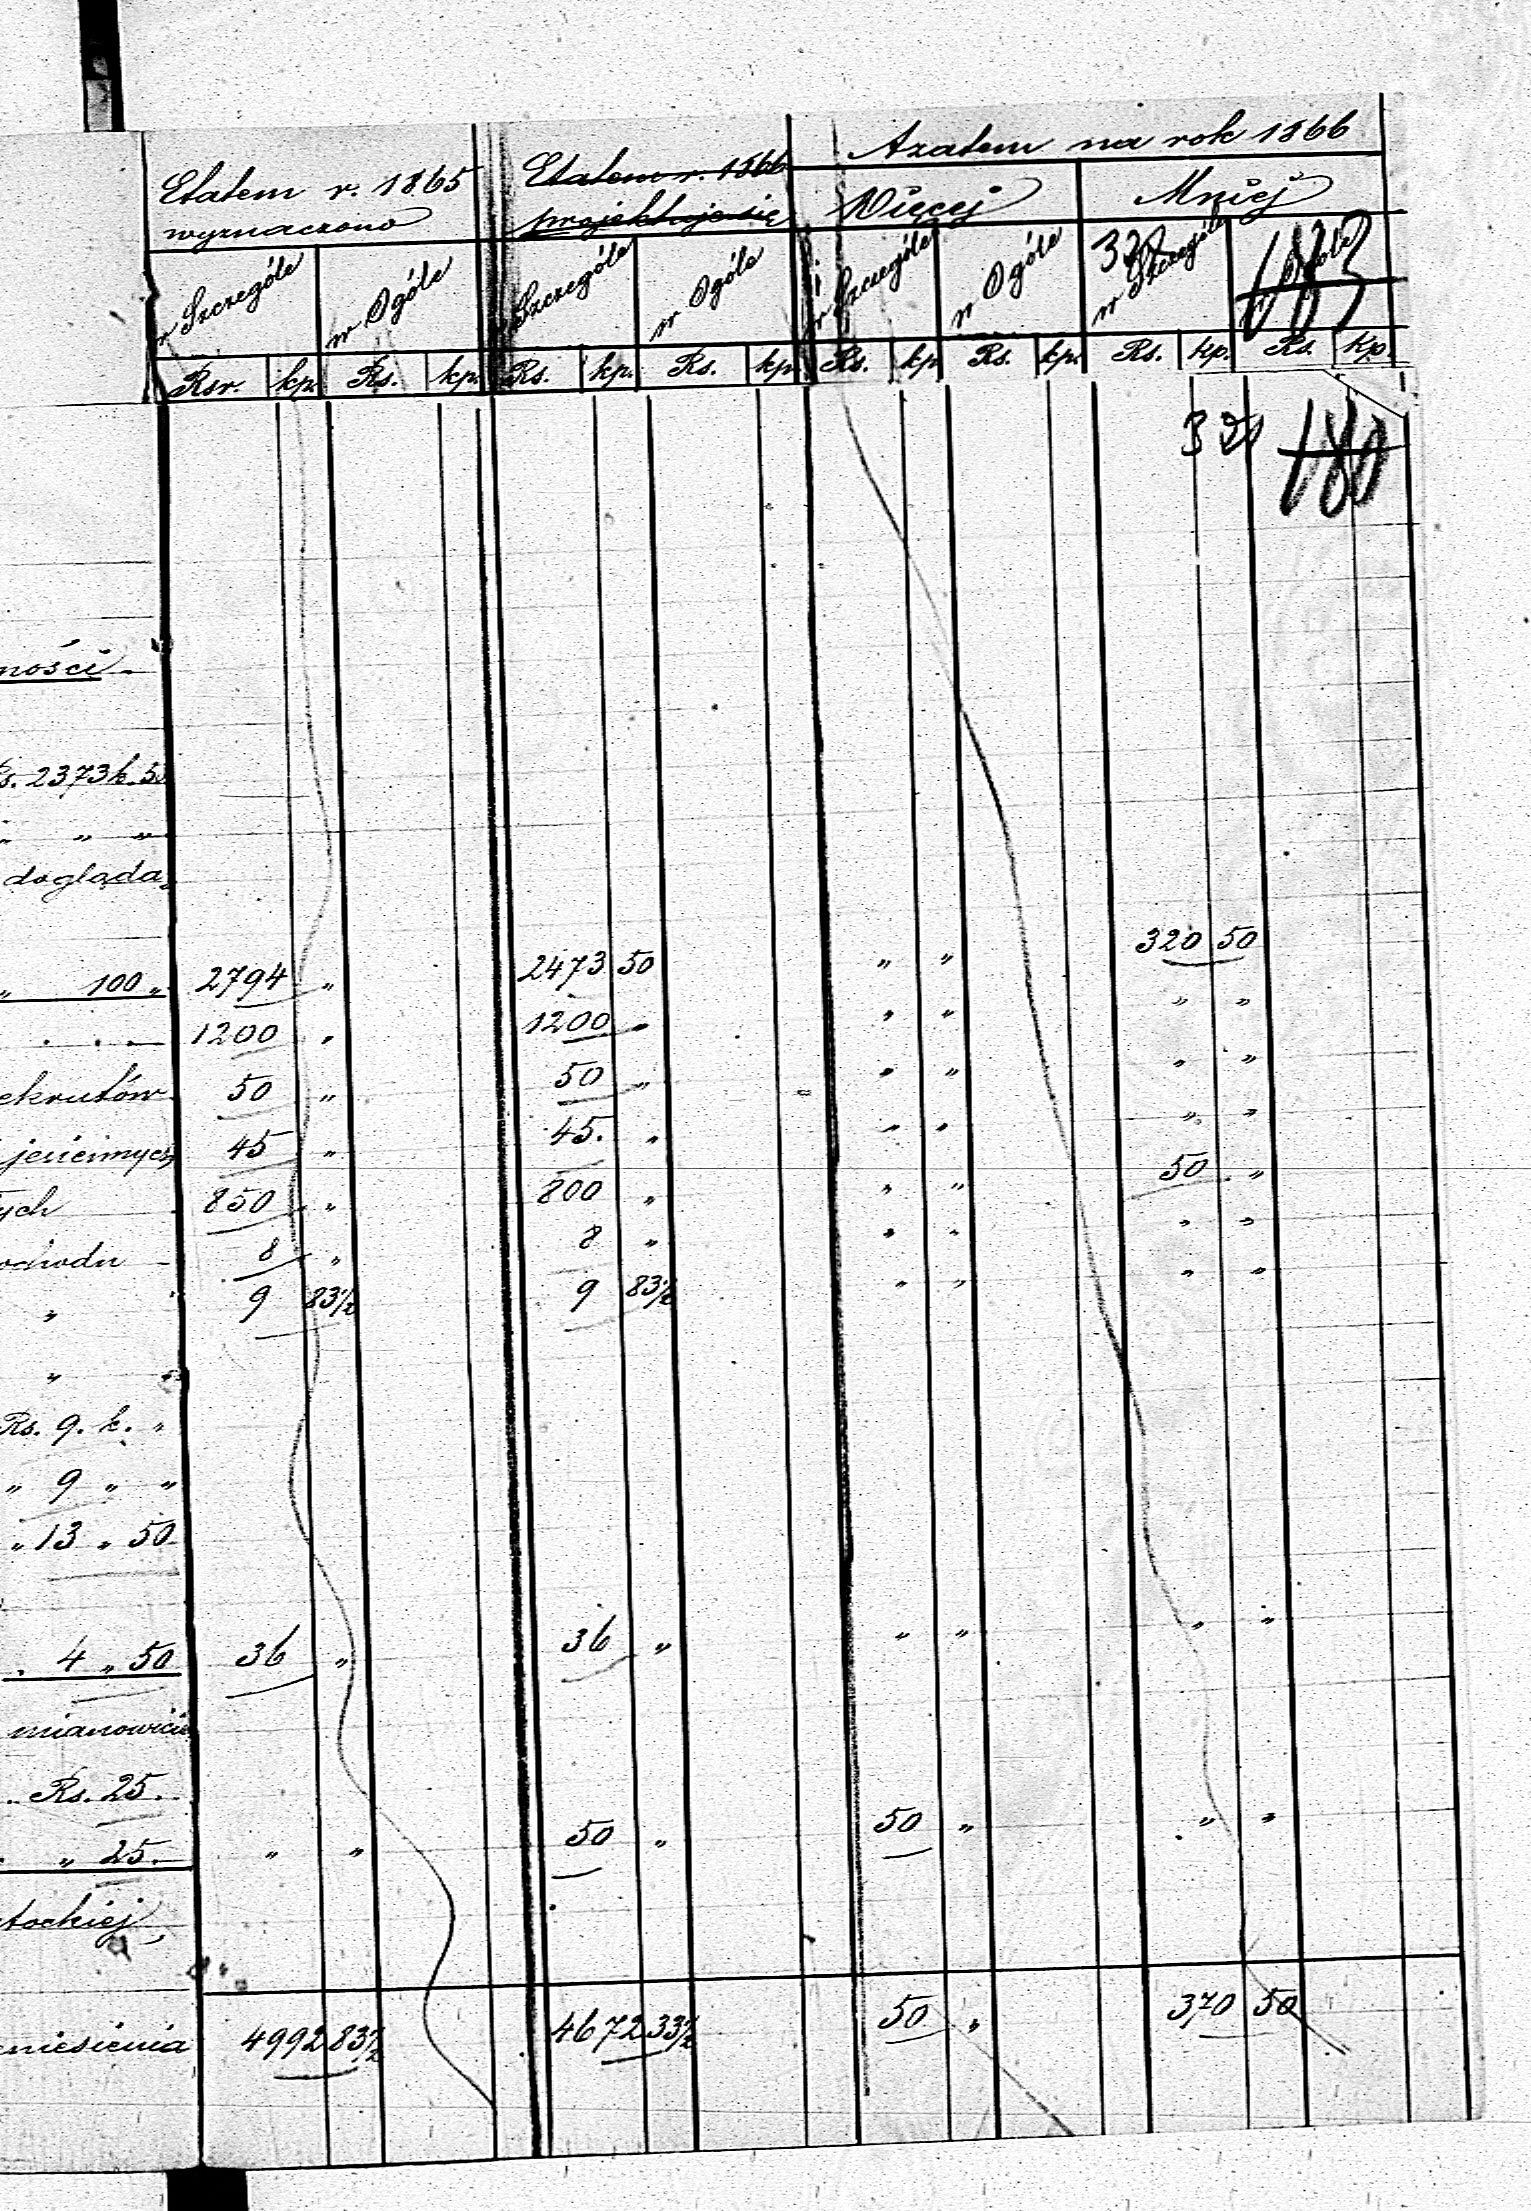 Azatem na rok 1866
Etatem r. 1865 wyznaczono
Etatem r. 1866 projektuje się
Więcej Mniej
w Szczególe w Ogóle w Szczególe w Ogóle w Szczególe w Ogóle w Szczególe w Ogóle
320 183
Rsr. kp. Rs. kp. Rs. kp. Rs. kp. Rs. kp. Rs. kp. Rs. kp. Rs. kp.
321 180
ności
Rs. 2373 k. 50
„ „ „
dogląda
„ 100 „ 2794 „ 2473 50 „ „ 320 50
. . . 1200 „ 1200 „ „ „ „ „
ekrutów 50 „ 50 „ „ „ „ „
45 „ 45. „ „ „ „ „
ych 850 „ 800 „ „ „ 50 „
8 „ 8 „ „ „ „ „
„ 9 83½ 9 83½ „ „ „ „
„ „
Rs. 9. k. „
„ 9 „ „
„ 13 „ 50
. 4 „ 50 36 „ 36 „ „ „ „ „
mianowicie
.. Rs. 25.
. „ 25. „ „ 50 „ 50 „ „ „
tockiej
niesienia 4992 83½ 4672 33½ 50 „ 370 50